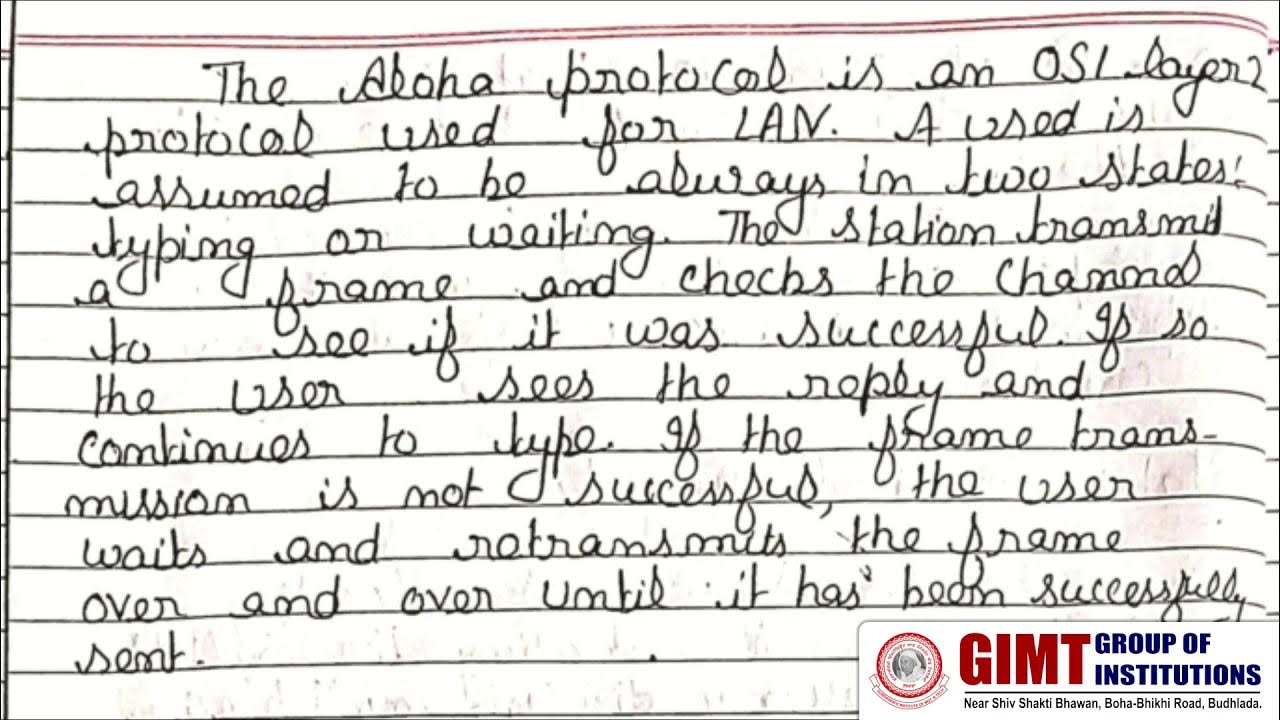 The Aloha protocol is an OSI layer 2
protocol used for LAN. A used is
assumed to be always in two states:
typing or waiting. The station transmit
a frame and checks the channel
to see if it was successful. If so
the user sees the reply and
continues to type. If the frame trans-
mission is not successful, the user
waits and retransmits the frame
over and over until it has been successfully
sent.
GIMT GROUP OF
INSTITUTIONS
Near Shiv Shakti Bhawan, Boha-Bhikhi Road, Budhlada.